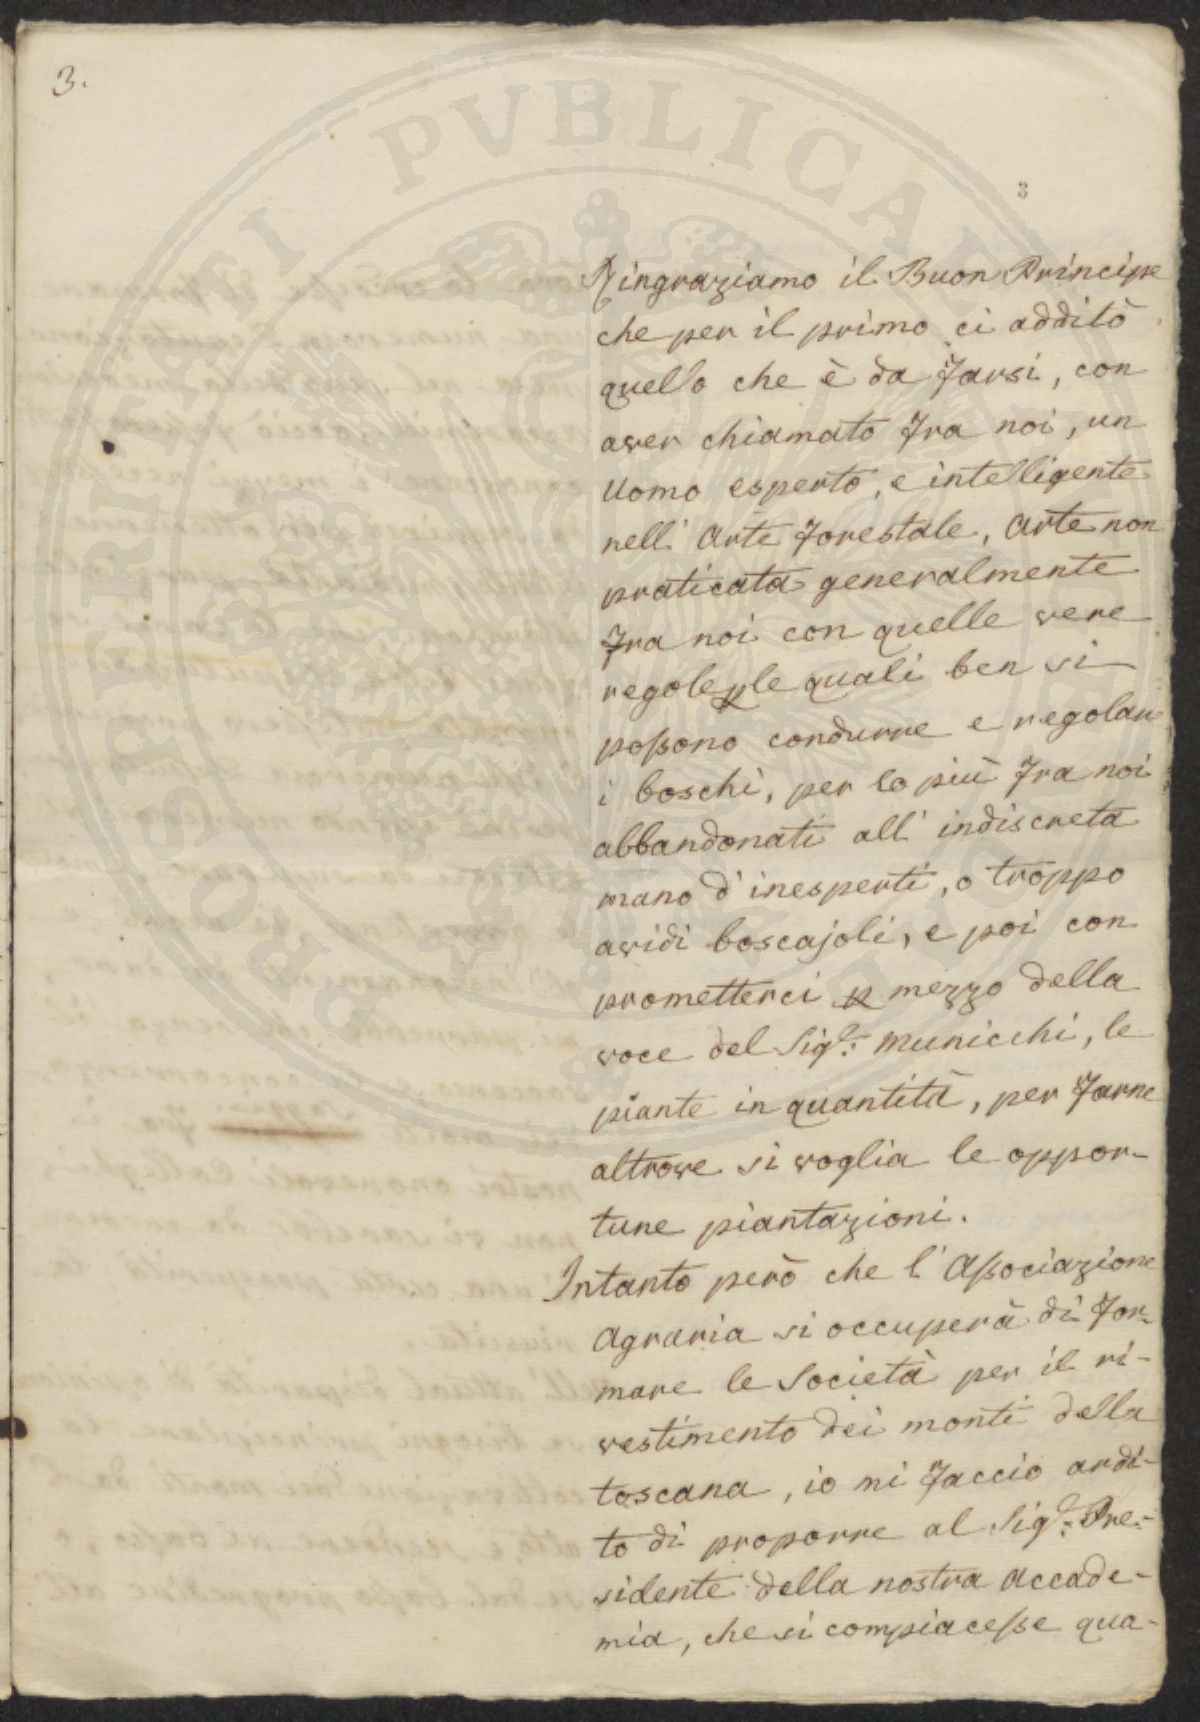 3.
PROSPERITATI PVBLICAE
3
Ringraziamo il Buon Principe
che per il primo ci additò
quello che è da farsi, con
aver chiamato fra noi, un
Uomo esperto, e intelligente
nell' Arte forestale, Arte non
praticata generalmente
fra noi con quelle vere
regole p le quali ben si
possono condurre e regolare
i boschi, per lo più fra noi
abbandonati all' indiscreta
mano d' inesperti, o troppo
avidi boscajoli, e poi con
prometterci p mezzo della
voce del Sig.r: Municchi, le
piante in quantità, per farne
altrove si voglia le oppor-
tune piantazioni.
Intanto però che l' Associazione
Agraria si occuperà di for-
mare le Società per il ri-
vestimento dei monti della
toscana, io mi faccio ardi-
to di proporre al Sig.r: Pre-
sidente della nostra Accade-
mia, che si compiacesse qua-